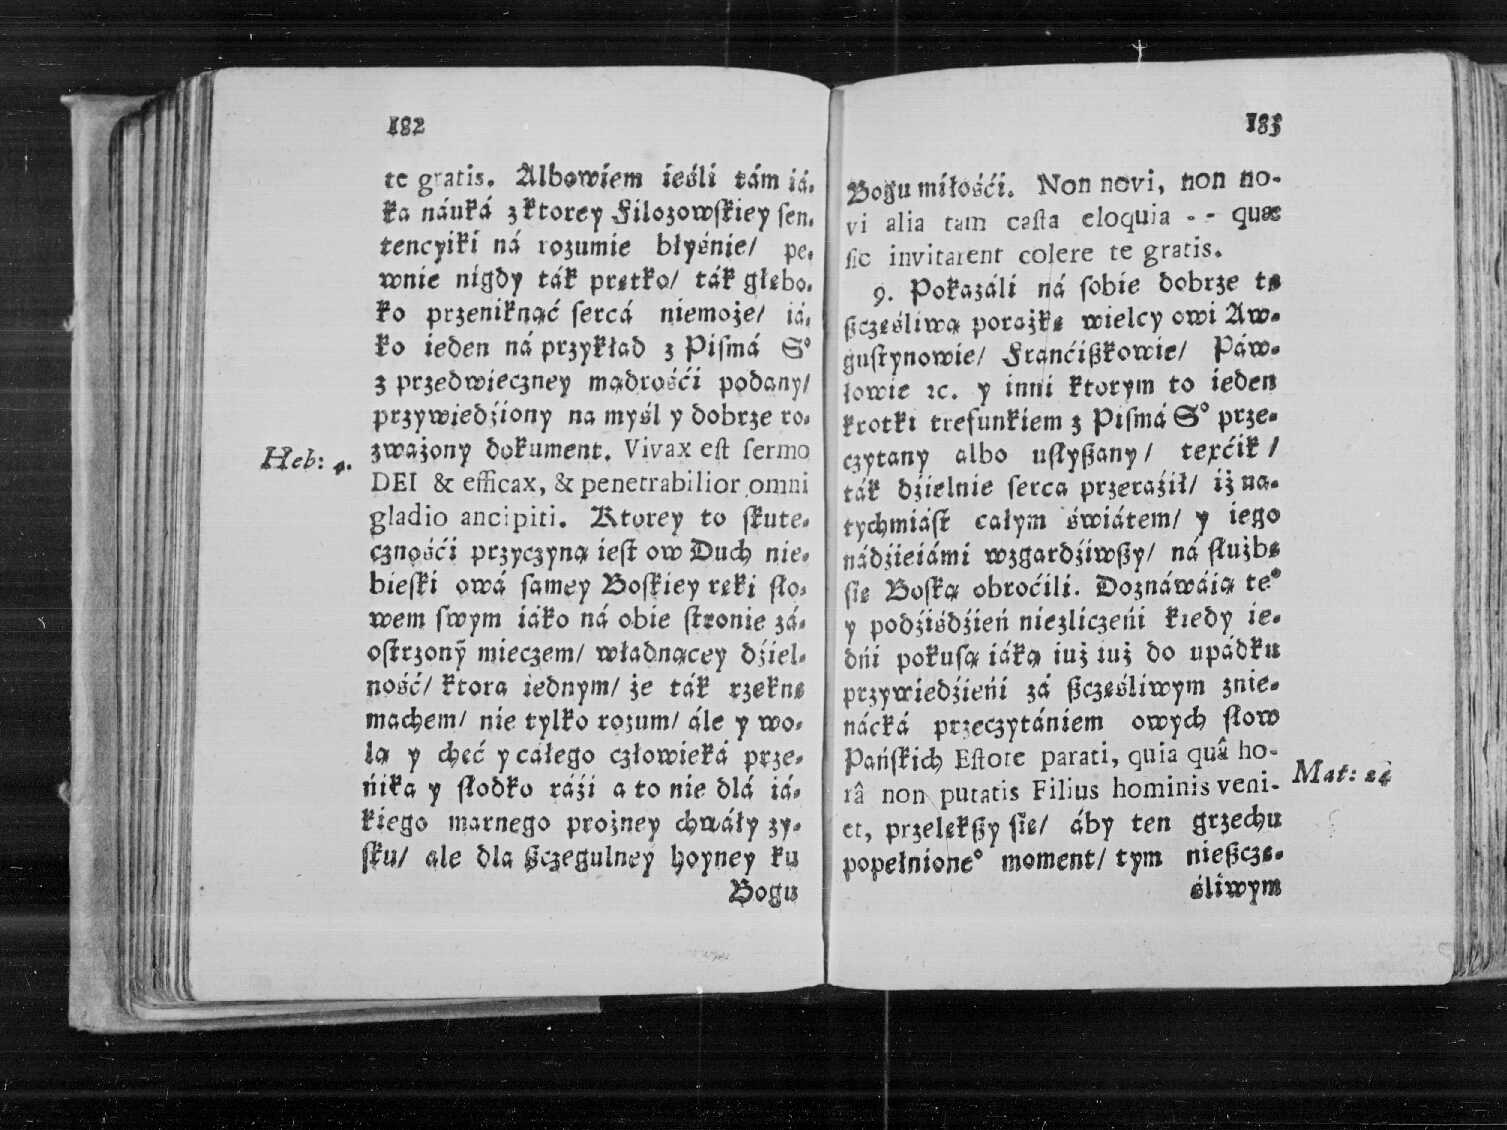 182
te gratis. Albowiem ieśli tám iá-
ka náuká z ktorey Filozowſkiey ſen-
tencyiki ná rozumie błyśnie/ pe-
wnie nigdy ták prętko/ ták głębo-
ko przeniknąć ſercá niemoże/ iá-
ko ieden ná przykład z Piſmá Sº
z przedwieczney mądrośći podany/
przywiedźiony na myśl y dobrze ro-
zważony dokument. Vivax eſt ſermo
Heb: 4.
DEI & efficax, & penetrabilior omni
gladio ancipiti. Ktorey to ſkute-
cznośći przyczyną ieſt ow Duch nie-
bieſki owá ſamey Boſkiey ręki ſło-
wem ſwym iáko ná obie ſtronie zá-
oſtrzonỹ mieczem/ władnącey dźiel-
ność/ ktora iednym/ że ták rzeknę
machem/ nie tylko rozum/ ále y wo-
lą y chęć y cáłego człowieká prze-
ńika y ſłodko ráźi a to nie dlá iá-
kiego marnego prożney chwáły zy-
ſku/ ale dla ßczegulney hoyney ku
Bogu
183
Bogu miłośći. Non novi, non no-
vi alia tam caſta eloquia - - quæ
ſic invitarent colere te gratis.
9. Pokazáli ná ſobie dobrze tę
ßczęśliwą porażkę wielcy owi Aw-
guſtynowie/ Franćißkowie/ Páw-
łowie ꝛc. y inni ktorym to ieden
krotki trefunkiem z Piſmá Sº prze-
czytany albo uſłyßany/ texćik/
ták dźielnie ſerca przeraźił/ iż na-
tychmiáſt całym świátem/ y iego
nádźieiámi wzgardźiwßy/ ná ſłużbę
ſię Boſką obroćili. Doznáwáią teº
y podźiśdźień niezliczeńi kiedy ie-
dńi pokuſą iáką iuż iuż do upádku
przywiedźieńi zá ßczęśliwym znie-
nácká przeczytániem owych ſłow
Pańſkich Eſtote parati, quia quâ ho-
râ non putatis Filius hominis veni-
Mat: 24
et, przelękßy ſię/ áby ten grzechu
popełnioneº moment/ tym nießczę-
śliwym